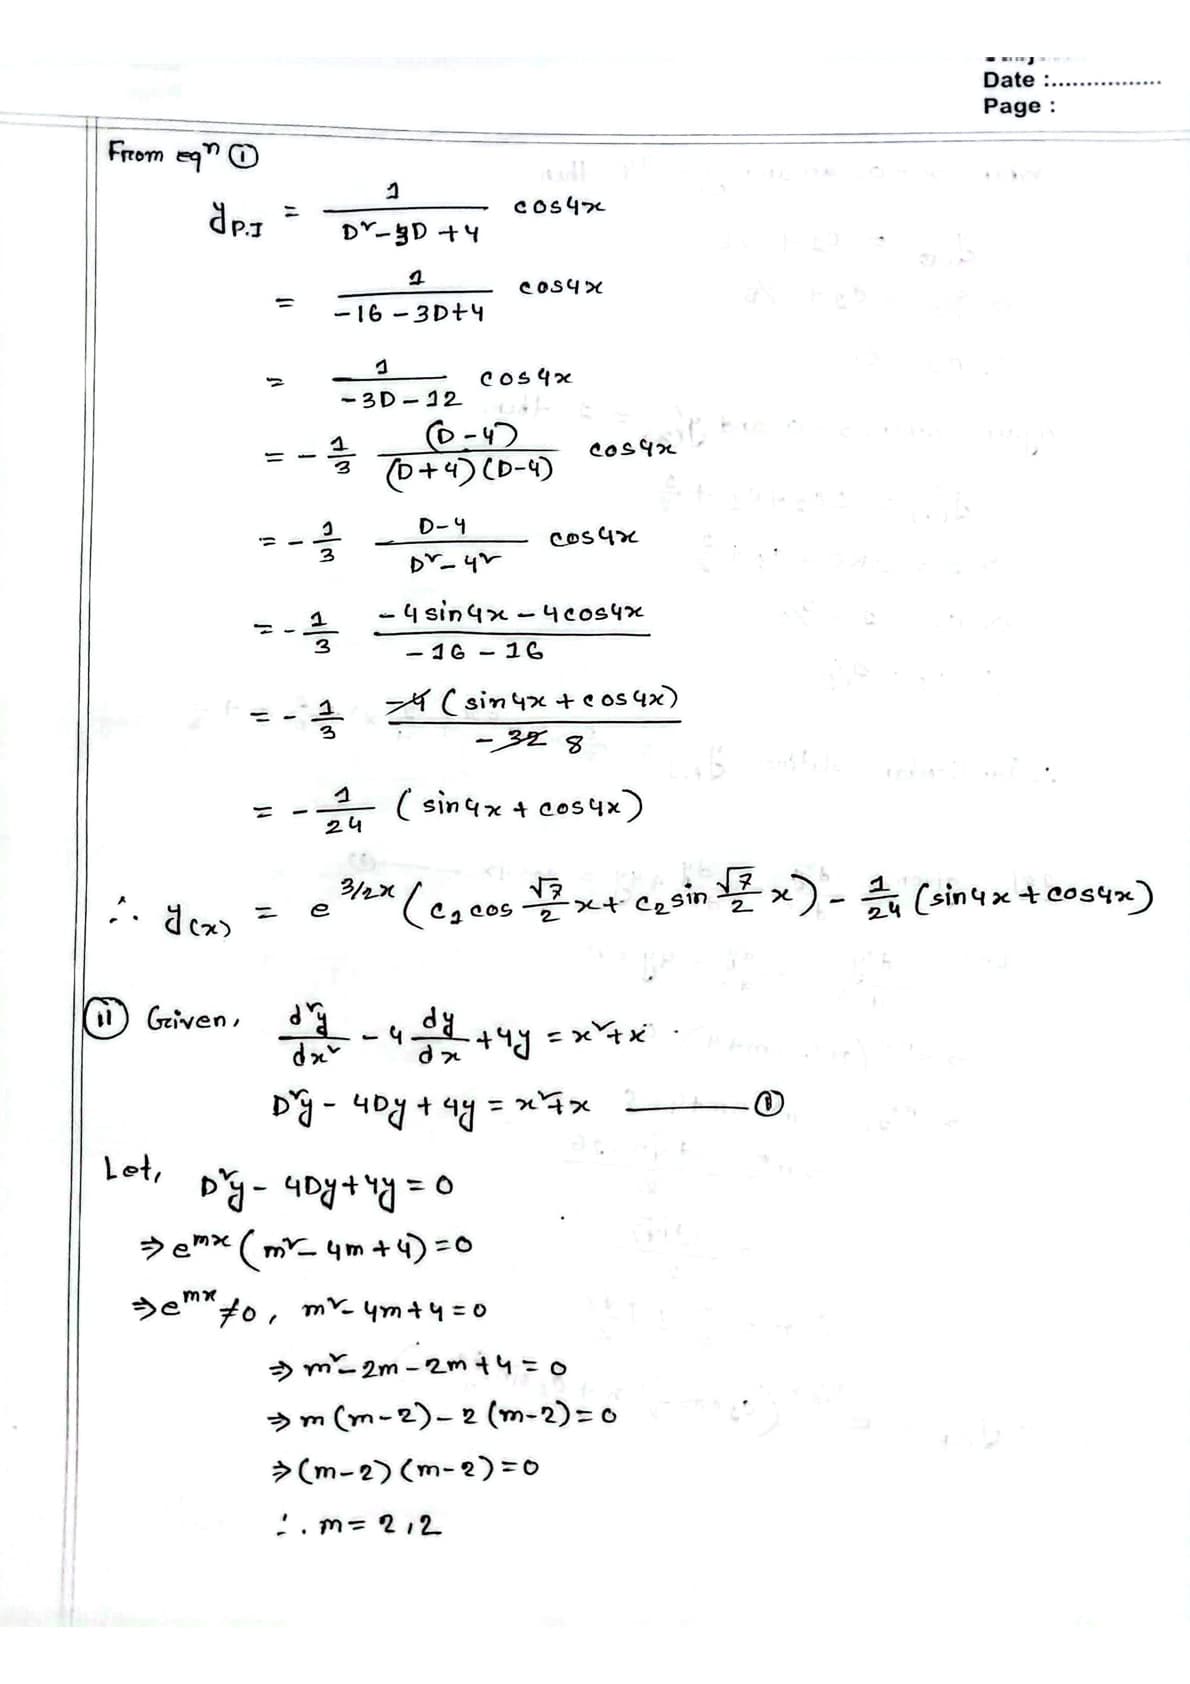 Date :................
Page :
From eqⁿ ①
y_P.I = 1/(D² - 3D + 4) cos4x
= 1/(-16 - 3D + 4) cos4x
= 1/(-3D - 12) cos4x
= - 1/3 (D - 4)/((D + 4)(D - 4)) cos4x
= - 1/3 (D - 4)/(D² - 4²) cos4x
= - 1/3 (-4 sin4x - 4 cos4x)/(-16 - 16)
= - 1/3 -4 (sin4x + cos4x)/(-32 8)
= - 1/24 (sin4x + cos4x)
∴ y(x) = e^(3/2x) (c₁ cos √7/2 x + c₂ sin √7/2 x) - 1/24 (sin4x + cos4x)
ⓘⓘ Given, d²y/dx² - 4 dy/dx + 4y = x² + x
D²y - 4Dy + 4y = x² + x ——— ①
Let, D²y - 4Dy + 4y = 0
⇒ e^(mx) (m² - 4m + 4) = 0
⇒ e^(mx) ≠ 0, m² - 4m + 4 = 0
⇒ m² - 2m - 2m + 4 = 0
⇒ m (m - 2) - 2 (m - 2) = 0
⇒ (m - 2) (m - 2) = 0
∴ m = 2, 2